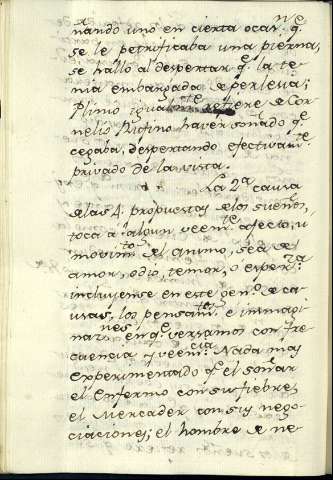 ñando uno en cierta ocasⁿᵉ q̃
se le petrificaba una pierna,
se halló al despertar qᵉ la te-
nia embargada de perlesia;
Plinio igualmᵗᵉ refiere de Cor-
nelio Rufino haver soñado qᵉ
cegaba, despertando efectivamᵗᵉ
privado de la vista.
La 2ª causa
de las 4. propuestas de los sueños,
toca à algun veemᵗᵉ afecto, ù
movimᵗᵒ del animo, sea de
amor, odio, temor, o esperᶻᵃ
incluyense en este genᵒ de ca-
usas, los pensamᵗᵒˢ e immagi-
nazⁿᵉˢ en qᵉ versamos con fre-
cuencia y veemᶜⁱᵃ. Nada mas
experimentado qᵉ el soñar
el Enfermo con su fiebre,
el Mercader con sus nego-
ciaciones; el hombre de ne-